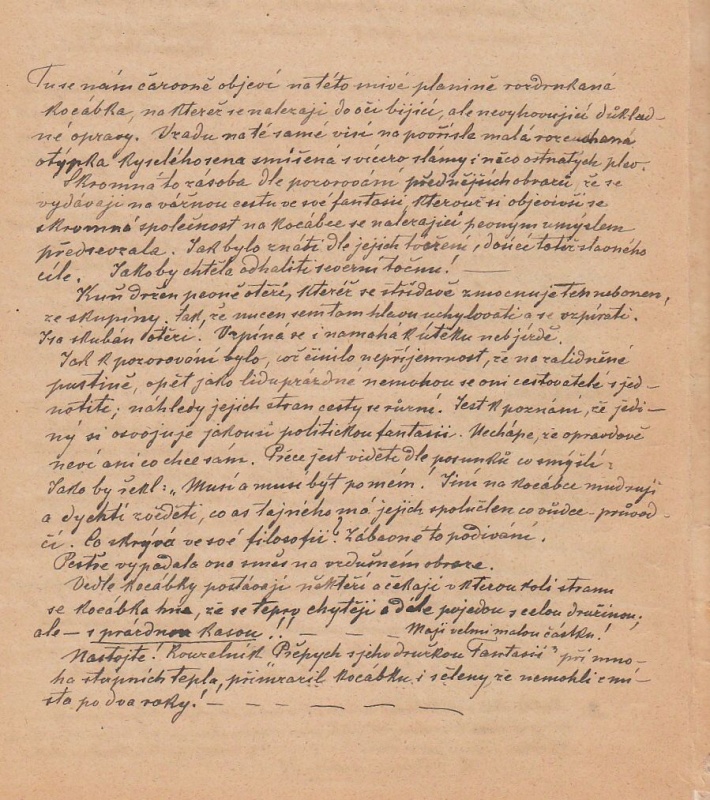 Tu se nám čarovně objeví na této snivé planině rozdrnkaná
kocábka, na kteréž se nalezají do očí bijící, ale nevyhovující důklad–
né opravy. Vzadu na té samé visí na povřísla malá rozcuchaná
otýpka kyselého sena smíšená s vícero slámy i něco ostnatých plev.
Skromná to zásoba dle pozorování přednějších obrazů, že se
vydávají na vážnou cestu ve své fantasii, kterouž si objevivší se
skromná společnost na kocábce se nalezající pevným úmyslem
předsevzala. Jak bylo znáti dle jejich tvoření, dojíti totiž slavného
cíle. Jakoby chtěla odhaliti severní točnu! —
Kuří držen pevně otěží, kteréž se střídavě zmocnuje ten neb onen,
ze skupiny. Tak, že nucen sem tam hlavu uchylovati a se vzpírati.
Jsa škubán otěží. Vzpíná se i namahá k útěku neb jízdě.
Jak k pozorování bylo, což činilo nepříjemnost, že na zalidněné
pustině, opět jako liduprázdné nemohou se oni cestovatelé sjed–
notiti; náhledy jejich stran cesty se různí. Jest k poznání, že jedi–
ný si osvojuje jakousi politickou fantasii. Nechápe, že opravdově
neví ani co chce sám. Přece jest viděti dle posunků co smýšlí:
Jako by řekl: „Musí a musí být po mém. Jiní na kocábce mudrují
a dychtí zvěděti, co as tajného má jejich spolučlen co vůdce – průvod–
čí. Co skrývá ve své filosofii? Zábavné to podívání.
Pestře vypadala ona směs na vzdušném obraze.
Vedle kocábky postávají někteří a čekají v kterou koli stranu
se kocábka hne, že se teprv chytějí a dále pojedou s celou družinou;
ale — s prázdnou kasou!! — — — Mají velmi malou částku!
Nastojte! Kouzelník Přepych s jeho družkou Fantasií" při mno–
ha stupních tepla, přimrazil kocábku i s členy, že nemohli z mí–
sta po dva roky! — — — — —